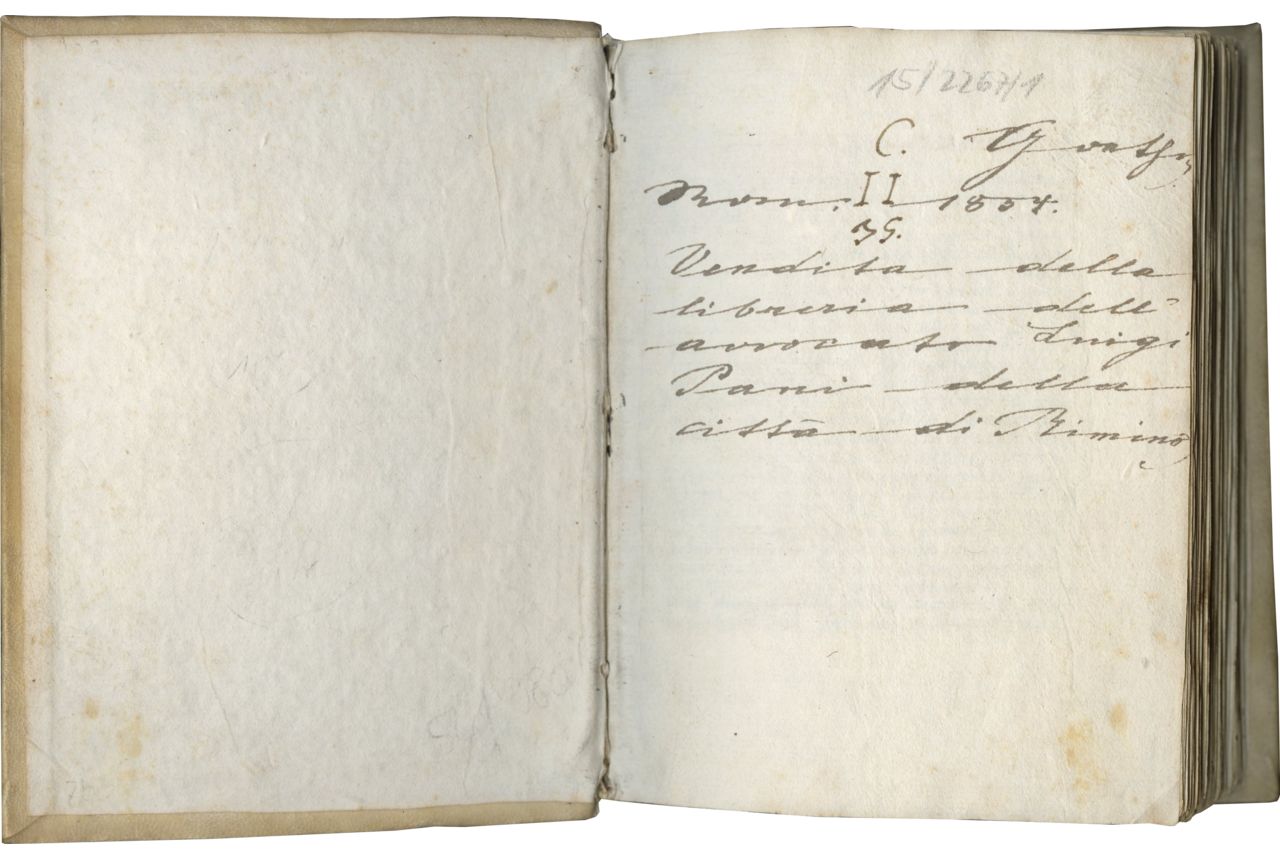 15/2267/1
C.
II
35.
Vendita della
libreria dell'
avvocato Luigi
Pani della
città di Rimino